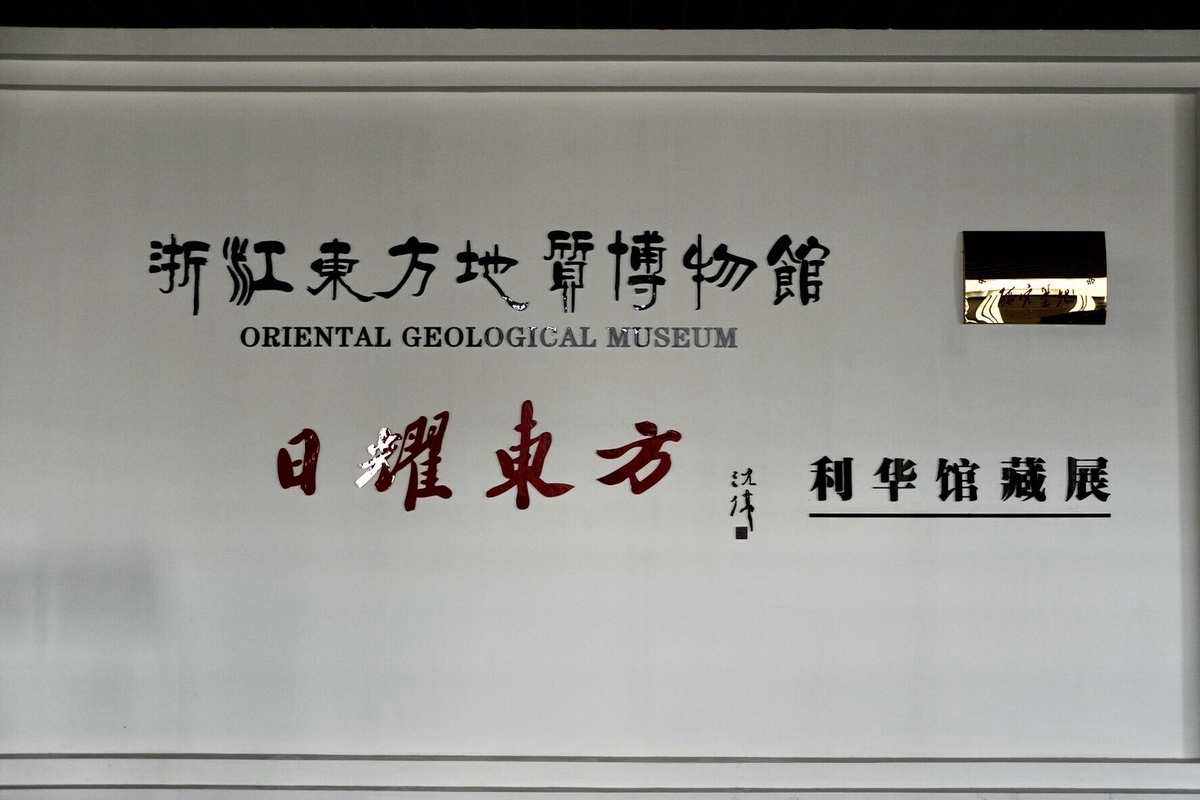 浙江東方地質博物館
ORIENTAL GEOLOGICAL MUSEUM
日耀東方
沈偉
利华馆藏展